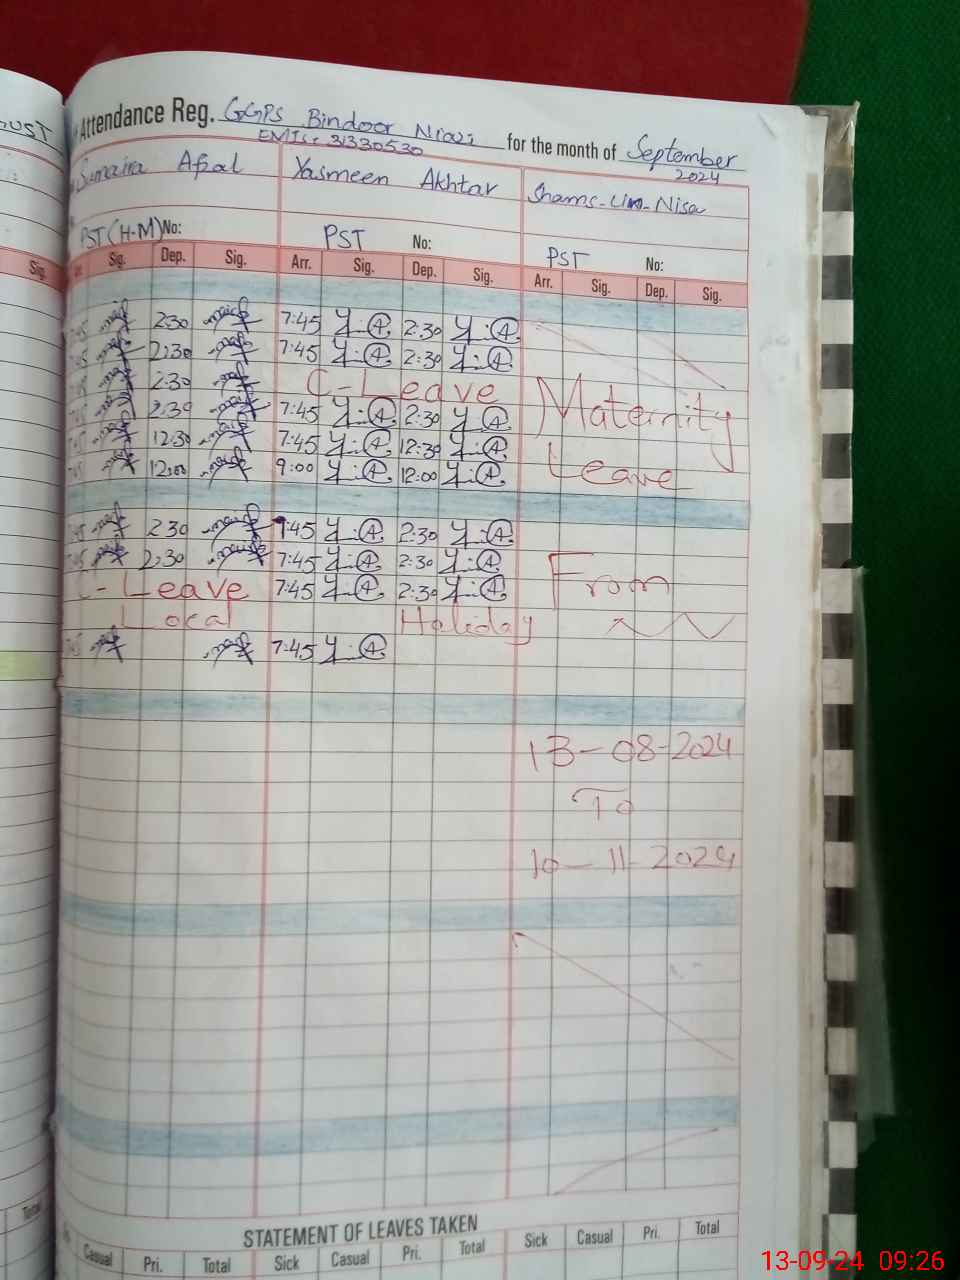 Attendance Reg. GGPS Bindoor Niazi for the month of September
EMIS: 31330530
2024
Sumaira Afzal Yasmeen Akhtar Shams-un-Nisa
PST (H-M) No: PST No: PST No:
Sig. Dep. Sig. Arr. Sig. Dep. Sig. Arr. Sig. Dep. Sig.
2:30 7:45 Y.A 2:30 Y.A
2:30 7:45 Y.A 2:30 Y.A
2:30 C-Leave Maternity
2:30 7:45 Y.A 2:30 Y.A
12:30 7:45 Y.A 12:30 Y.A
12:00 9:00 Y.A 12:00 Y.A Leave
2:30 7:45 Y.A 2:30 Y.A
2:30 7:45 Y.A 2:30 Y.A
C-Leave 7:45 Y.A 2:30 Y.A From
Local Holiday
7:45 7:45 Y.A
13-08-2024
To
10-11-2024
STATEMENT OF LEAVES TAKEN
Casual Pri. Total Sick Casual Pri. Total Sick Casual Pri. Total
Sig.
Total
13-09-24 09:26